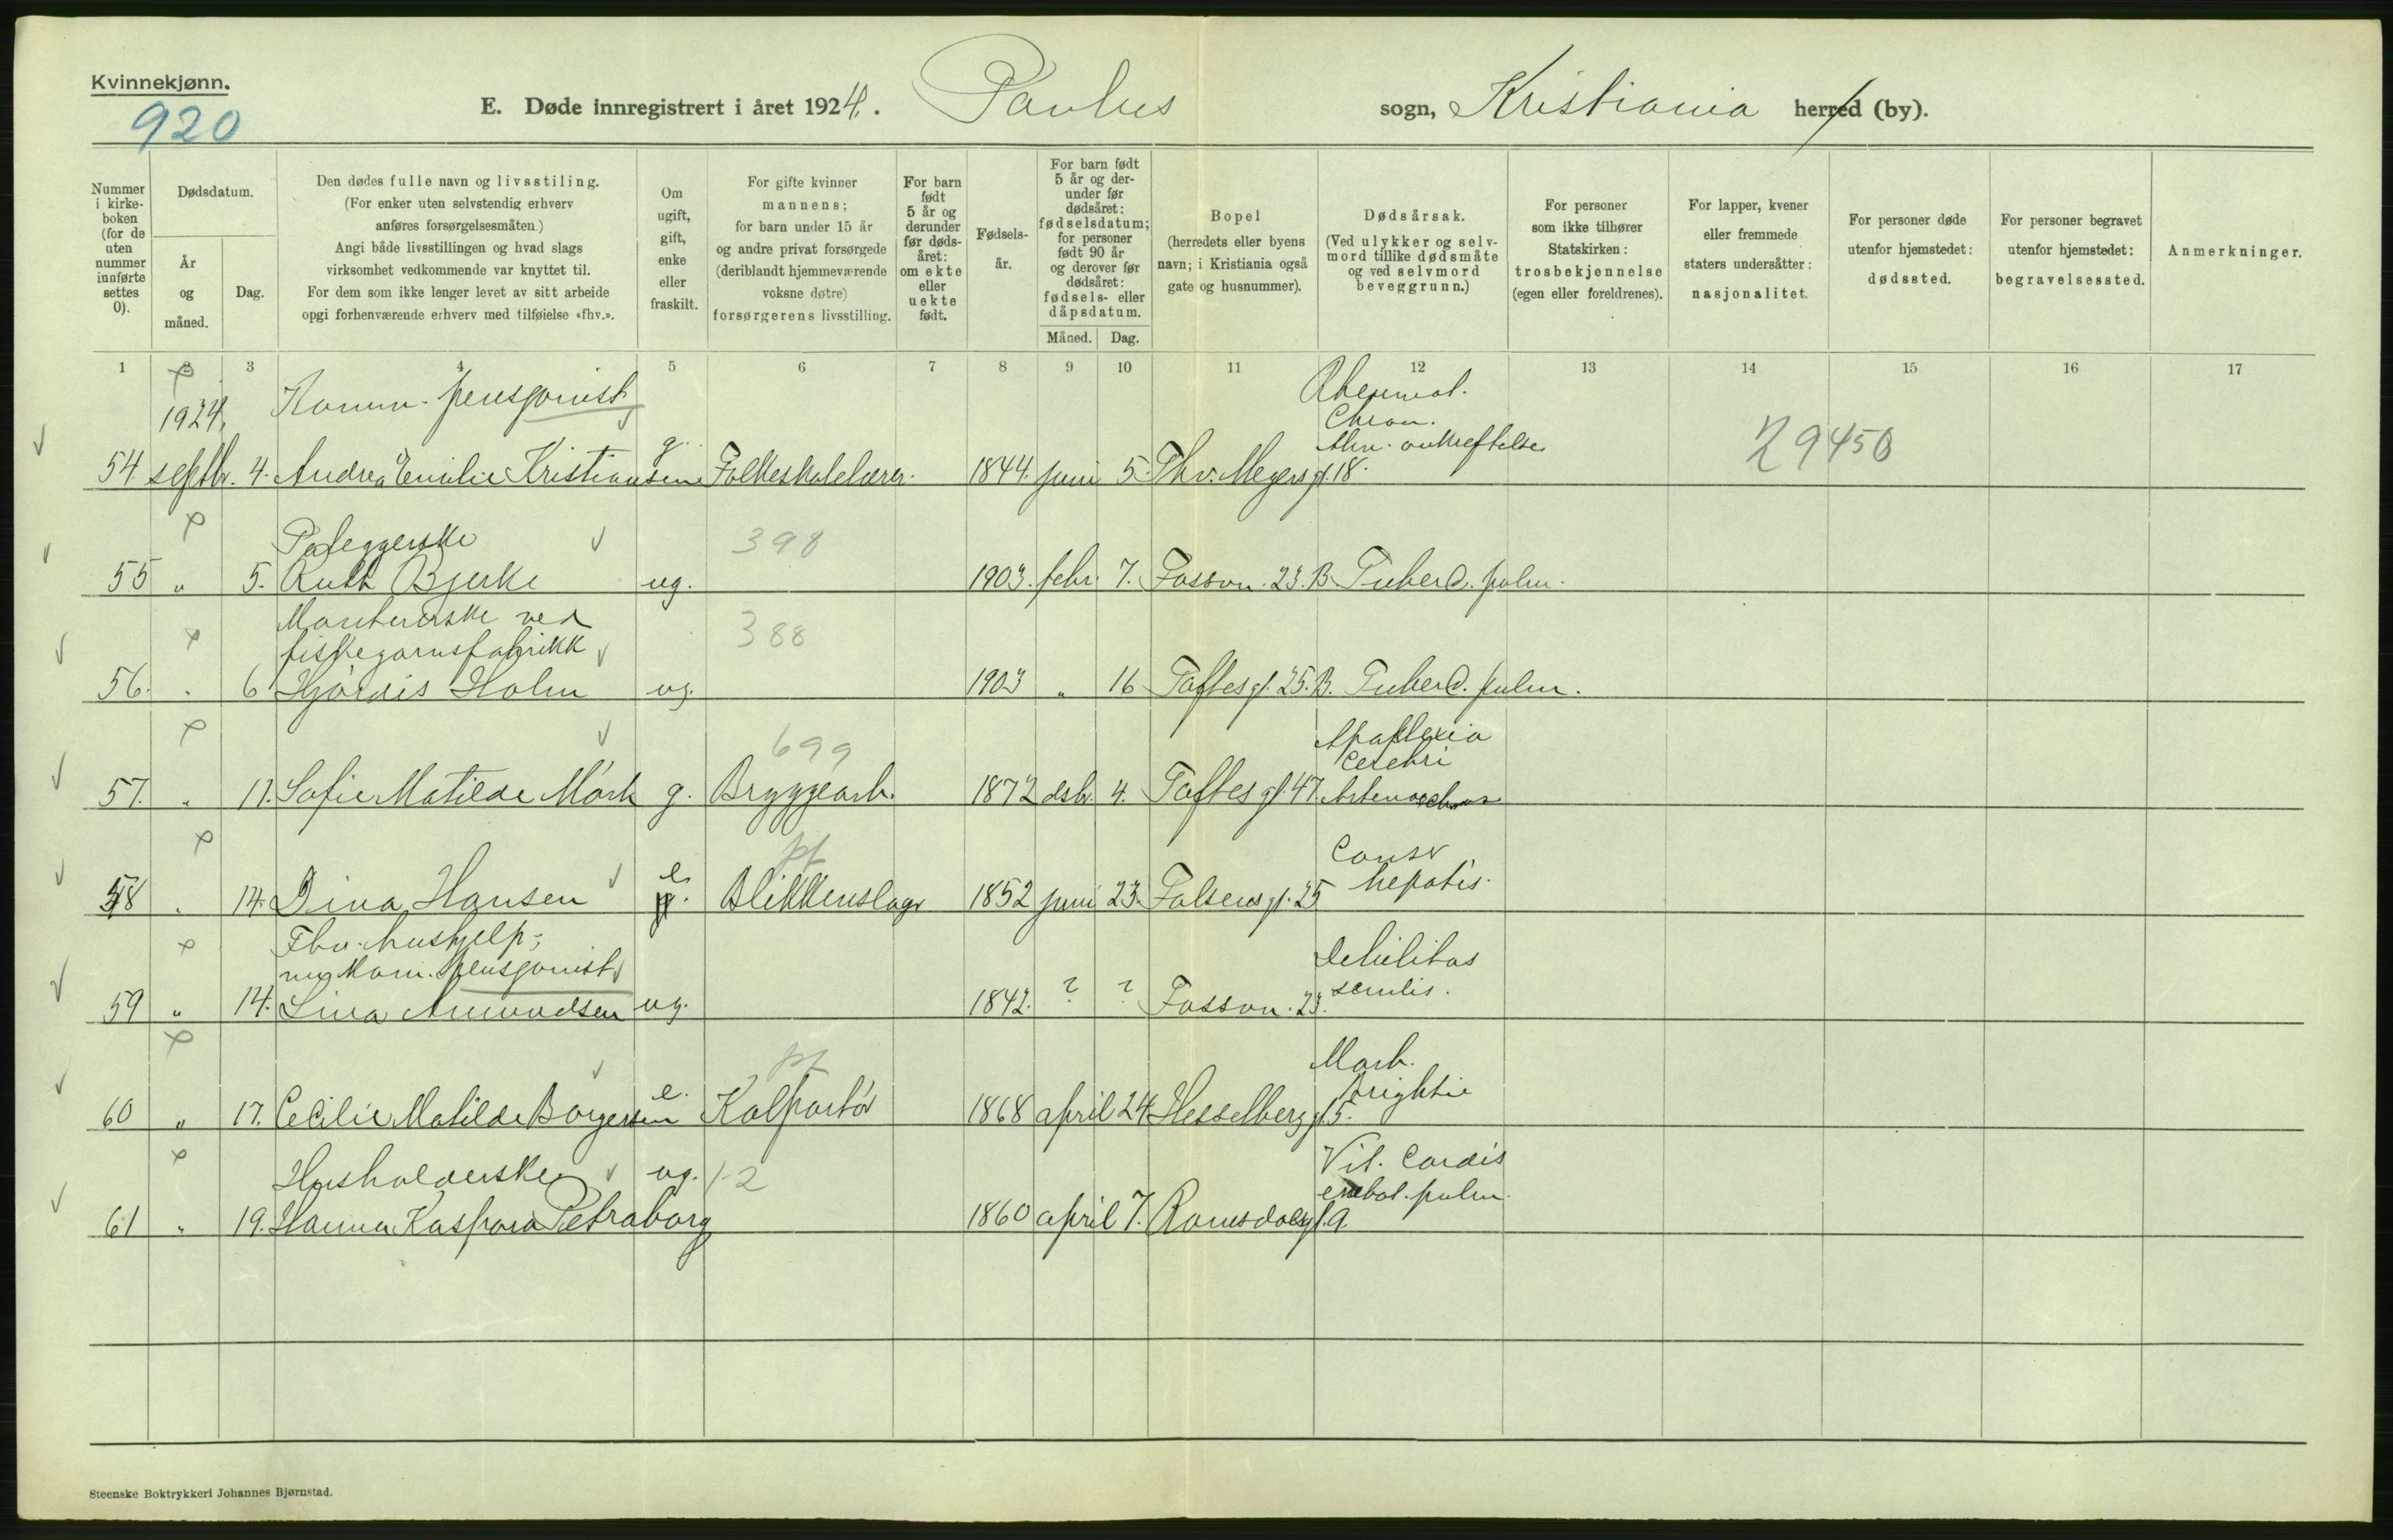 Kvinnekjønn.
920
E. Døde innregistrert i året 1924. Paulus sogn, Kristiania herred (by).
Nummer i kirkeboken (for de uten nummer innførte settes 0).
Dødsdatum.
År og måned.
Dag.
Den dødes fulle navn og livsstiling.
(For enker uten selvstendig erhverv
anføres forsørgelsesmåten.)
Angi både livsstillingen og hvad slags
virksomhet vedkommende var knyttet til.
For dem som ikke lenger levet av sitt arbeide
opgi forhenværende erhverv med tilføielse «fhv.».
Om ugift, gift, enke eller fraskilt.
For gifte kvinner
mannens;
for barn under 15 år
og andre privat forsørgede
(deriblandt hjemmeværende
voksne døtre)
forsørgerens livsstilling.
For barn født 5 år og derunder før dødsåret: om ekte eller uekte født.
Fødselsår.
For barn født 5 år og derunder før dødsåret: fødselsdatum; for personer født 90 år og derover før dødsåret: fødsels- eller dåpsdatum.
Måned. Dag.
Bopel
(herredets eller byens
navn; i Kristiania også
gate og husnummer).
Dødsårsak.
(Ved ulykker og selvmord tillike dødsmåte og ved selvmord beveggrunn.)
For personer
som ikke tilhører
Statskirken:
trosbekjennelse
(egen eller foreldrenes).
For lapper, kvener
eller fremmede
staters undersåtter:
nasjonalitet.
For personer døde
utenfor hjemstedet:
dødssted.
For personer begravet
utenfor hjemstedet:
begravelsessted.
Anmerkninger.
1 2 3 4 5 6 7 8 9 10 11 12 13 14 15 16 17
1924. Komm. pensjonist Rheumat.
Chron.
Alm. avkreftelse
29450
54. septbr. 4. Andrea Emilie Kristiansen g. Folkeskolelærer. 1844. juni 5. Thv. Meyers gt. 18.
Paleggerske 398
55 " 5. Ruth Bjerke ug. 1903. febr. 7. Fossvn. 23. B. Tuberc. pulm.
Montererske ved
fiskegarnsfabrikk 388
56. " 6 Hjördis Holm ug. 1903 " 16 Toftes gt. 25. B. Tuberc. pulm.
699 Apoplexia
Cerebri
57. " 11. Sofie Matilde Mörk g. Bryggearb. 1872 dsbr. 4. Toftes gt. 47
pf
58 " 14. Dina Hansen e. Blikkenslager 1852 juni 23. Falsens gt. 25 hepatis.
Fhv. hushjelp;
nu kom. pensjonist Debilitas
senilis.
59 " 14. Lina Amundsen ug. 1842. ? ? Fossvn. 23.
pf Morb.
Brightii
60 " 17. Cecilie Matilde Borgersen e. Kolportör 1868 april 24 Hesselberg gt. 5.
Husholderske ug. 1-2 Vit. Cordis
embol. pulm.
61 " 19. Hanna Kaspara Petraborg 1860 april 7. Romsdals gt. 9.
Steenske Boktrykkeri Johannes Bjørnstad.